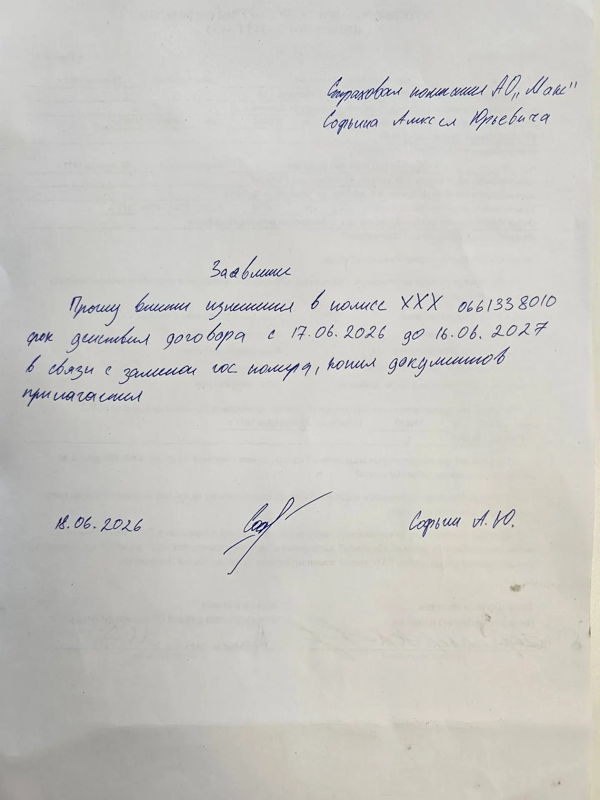 Страховая компания АО „Макс"
Софьина Алексея Юрьевича
Заявление
Прошу внести изменения в полисе ХХХ 0661338010
срок действия договора с 17.06.2026 до 16.06.2027
в связи с заменой гос номера, копия документов
прилагается
18.06.2026
Софьин А.Ю.